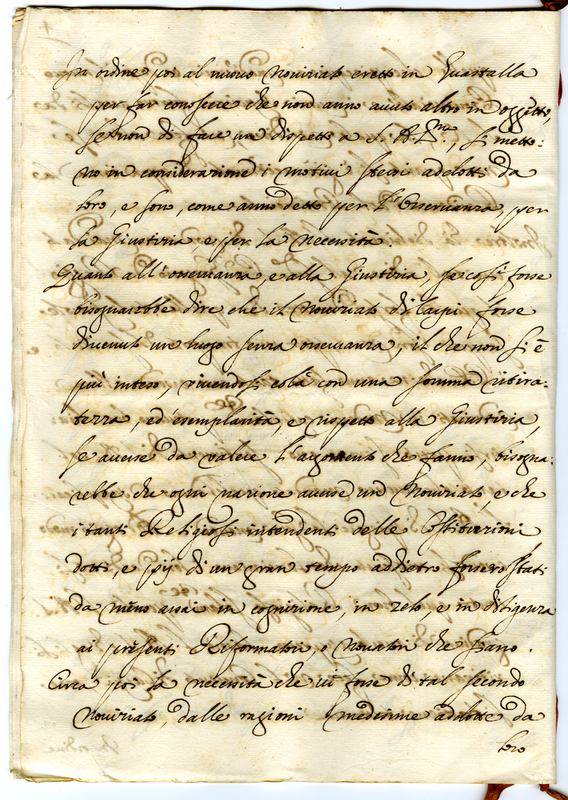 In ordine poi al nuovo Noviziato eretto in Guastalla
per far conoscere che non anno avuto altro in oggetto,
se non di fare un dispetto a S. A. Sma., si metto-
no in considerazione i motivi stessi adotti da
loro, e sono, come anno detto per l'Osservanza, per
la Giustizia e per la necessità.
Quanto all'osservanza, e alla Giustizia, se così fosse
bisognarebbe dire che il Noviziato di Carpi fosse
divenuto un luogo senza osservanza, il che non si è
più inteso, vivendosi colà con una somma ritira-
tezza, ed esemplarità, e rispetto alla Giustizia,
se avesse da valere l'argomento che fanno, bisogna-
rebbe che ogni nazione avesse un Noviziato, e che
i tanti Religiosi intendenti delle Costituzioni
dotti, e pij di un gran tempo addietro fossero stati
da meno assai in cognizione, in zelo, e in diligenza
ai presenti Riformatori, o Novatori che siano.
Circa poi la necessità che vi fosse di tal secondo
Noviziato, dalle ragioni medesime adotte da
loro